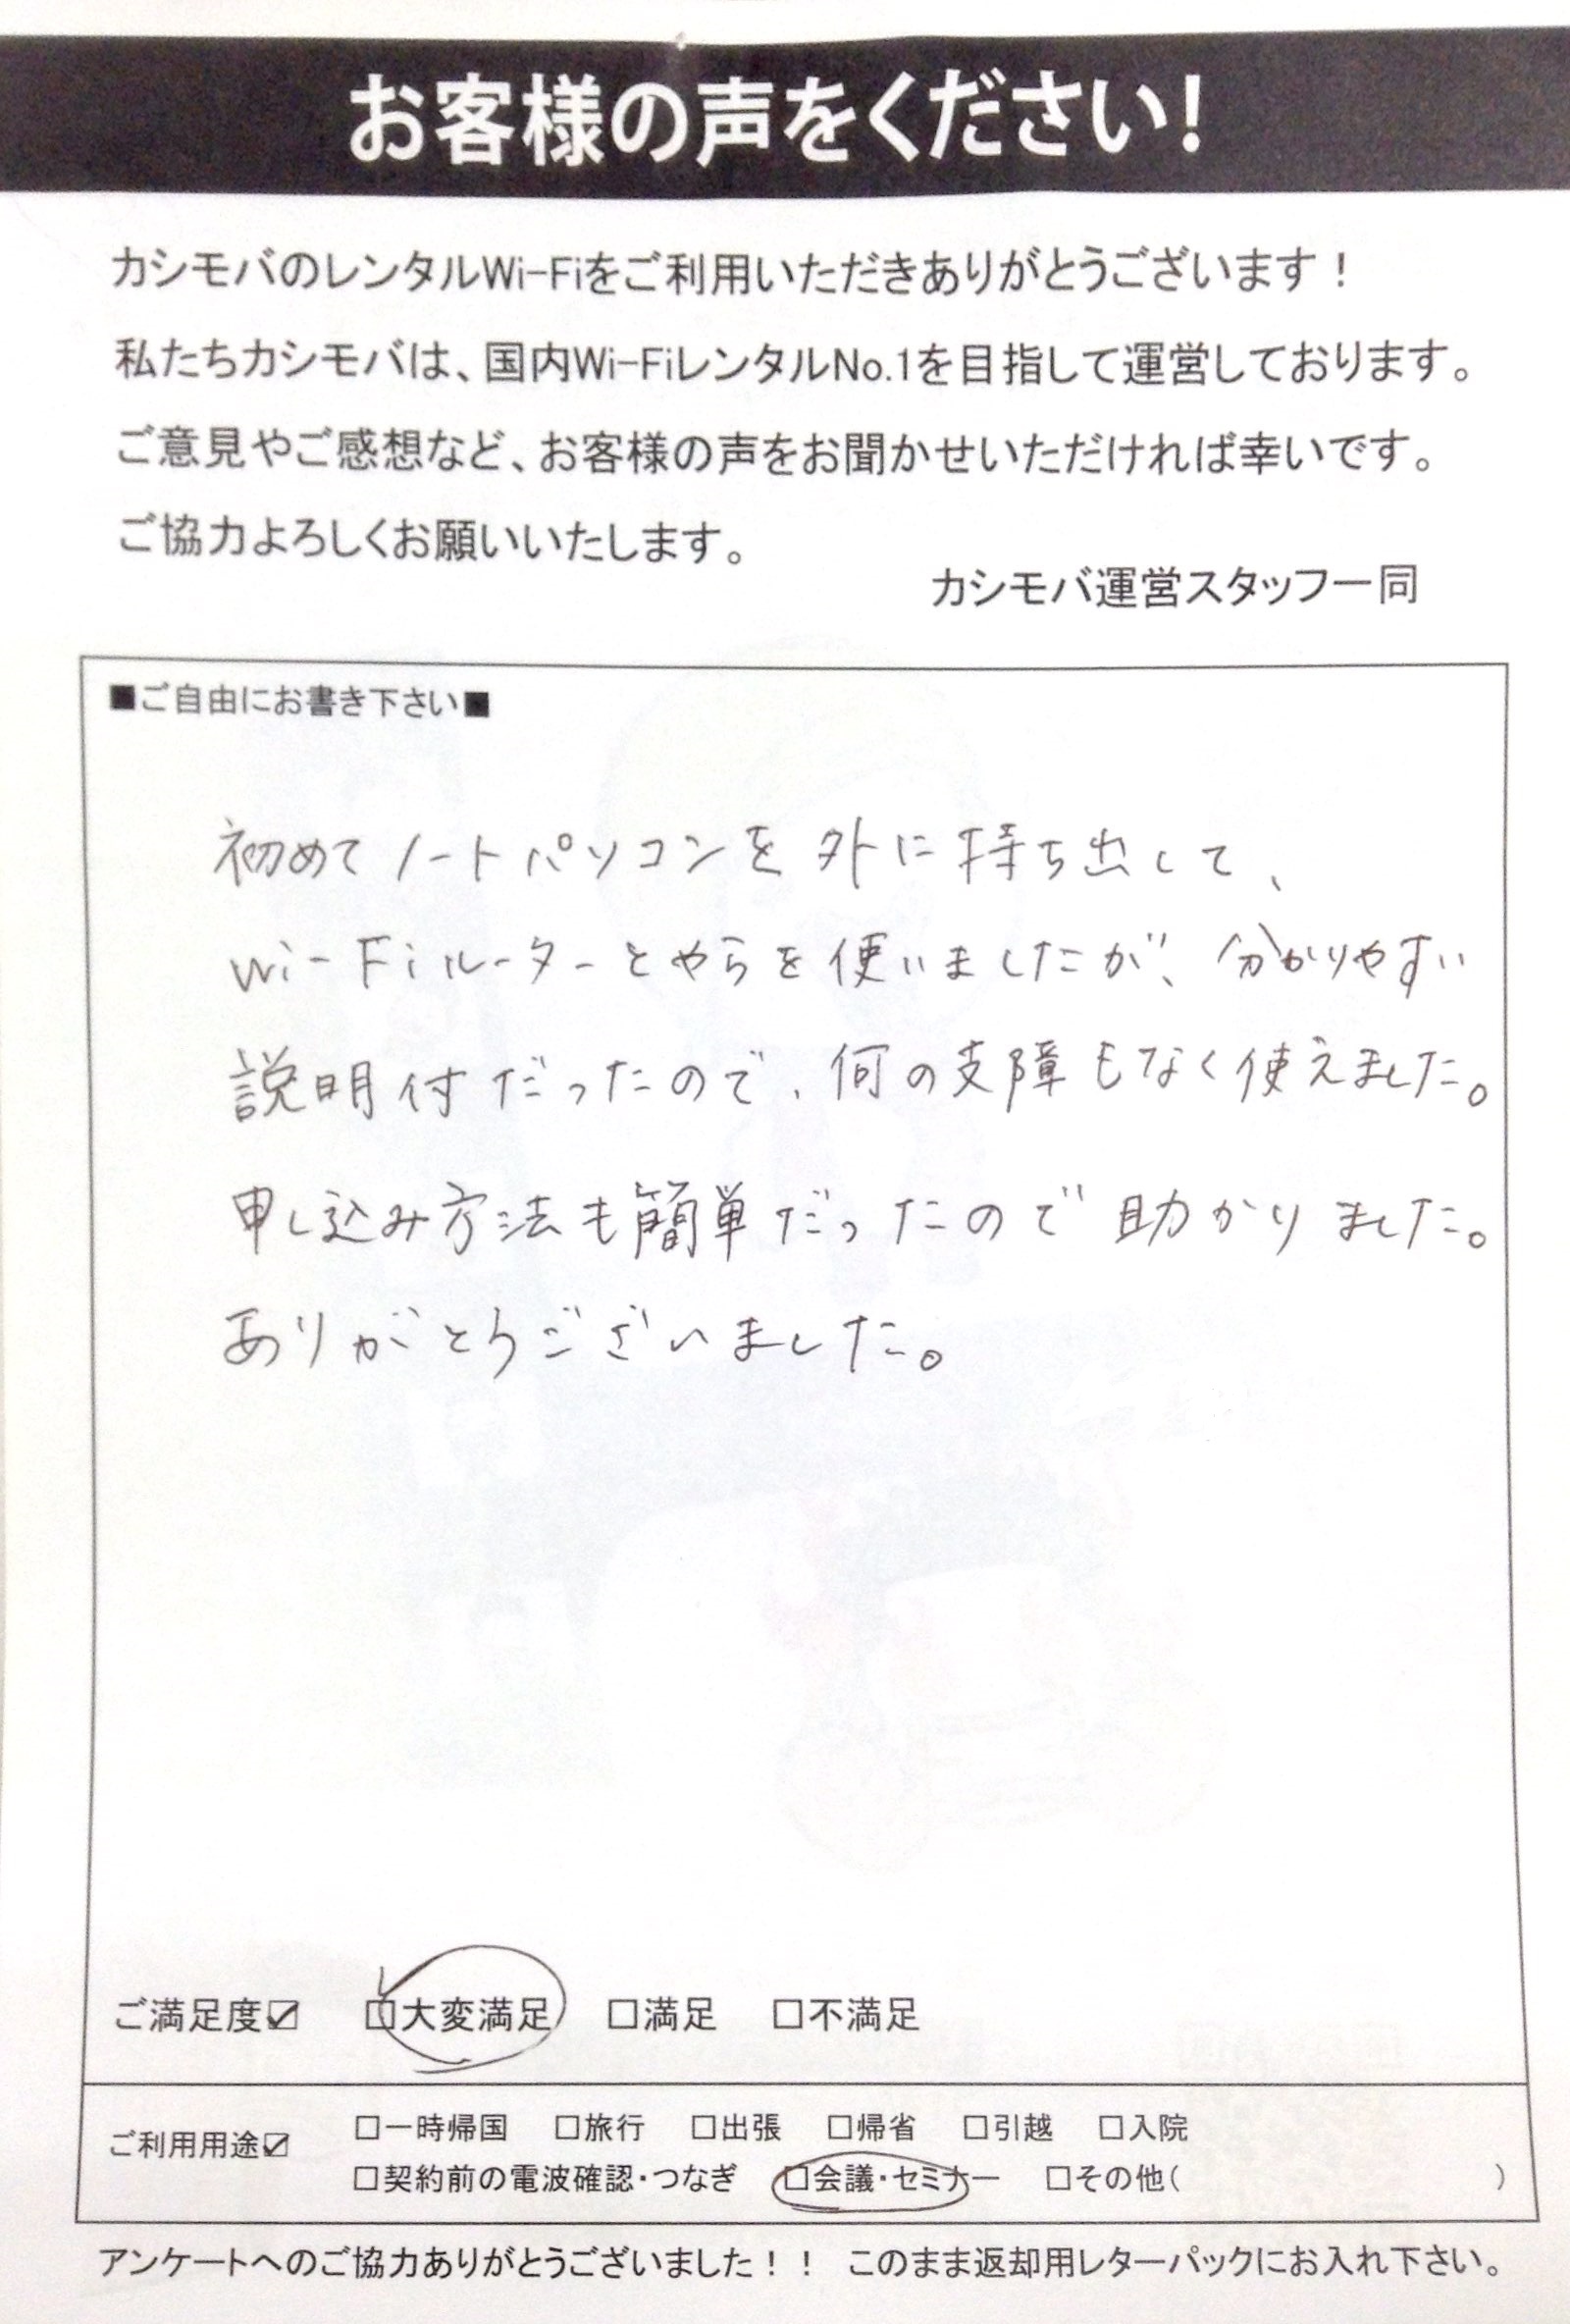 お客様の声をください!
カシモバのレンタルWi-Fiをご利用いただきありがとうございます！
私たちカシモバは、国内Wi-FiレンタルNo.1を目指して運営しております。
ご意見やご感想など、お客様の声をお聞かせいただければ幸いです。
ご協力よろしくお願いいたします。
カシモバ運営スタッフ一同
■ご自由にお書き下さい■
初めてノートパソコンを外に持ち出して、
Wi-Fiルーターとやらを使いましたが、分かりやすい
説明付だったので、何の支障もなく使えました。
申し込み方法も簡単だったので助かりました。
ありがとうございました。
ご満足度☑ □大変満足 □満足 □不満足
ご利用用途☑ □一時帰国 □旅行 □出張 □帰省 □引越 □入院
□契約前の電波確認・つなぎ □会議・セミナー □その他( )
アンケートへのご協力ありがとうございました！！ このまま返却用レターパックにお入れ下さい。